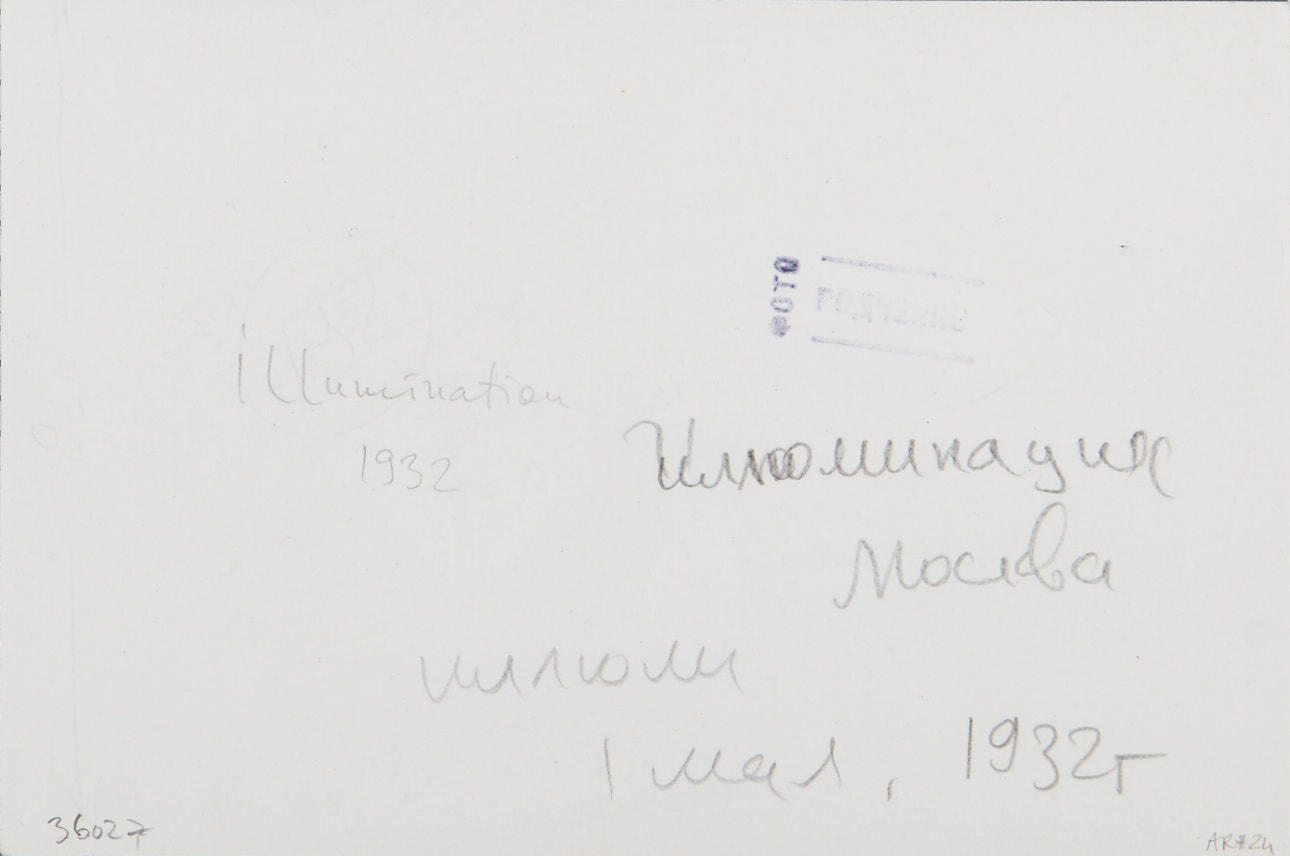 ФОТО
РОДЧЕНКО
illumination
1932
Иллюминация
Москва
иллюми
1 мая, 1932г
36027
AR#24